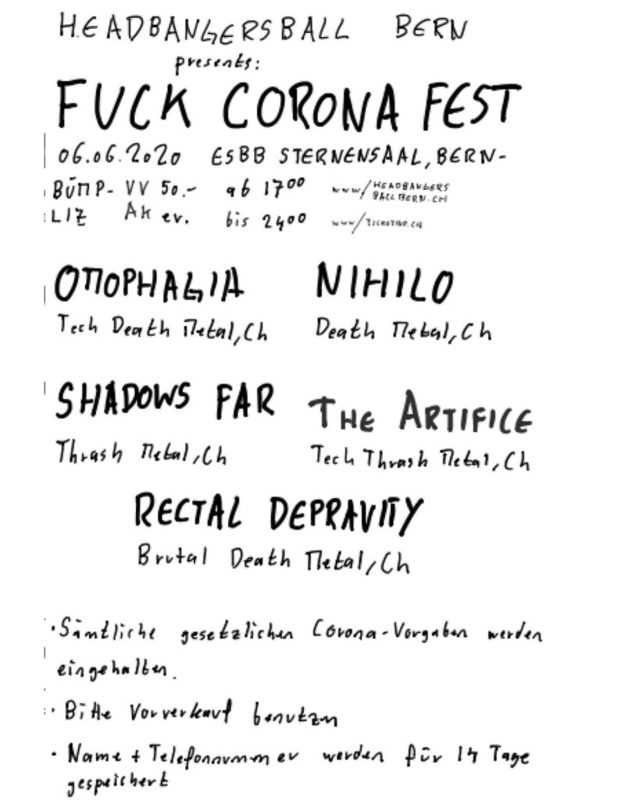 HEADBANGERSBALL BERN
presents:
FUCK CORONA FEST
06.06.2020 ESBB STERNENSAAL, BERN-
BÜMP- VV 50.- ab 17⁰⁰ www/HEADBANGERS
BALLBERN.CH
LIZ AK ev. bis 2400 www/
OMOPHAGIA NIHILO
Tech Death Metal, Ch Death Metal, Ch
SHADOWS FAR THE ARTIFICE
Thrash Metal, Ch Tech Thrash Metal, Ch
RECTAL DEPRAVITY
Brutal Death Metal, Ch
· Sämtliche gesetzlichen Corona-Vorgaben werden
eingehalten.
· Bitte Vorverkauf benutzen
· Name + Telefonnummer werden für 14 Tage
gespeichert